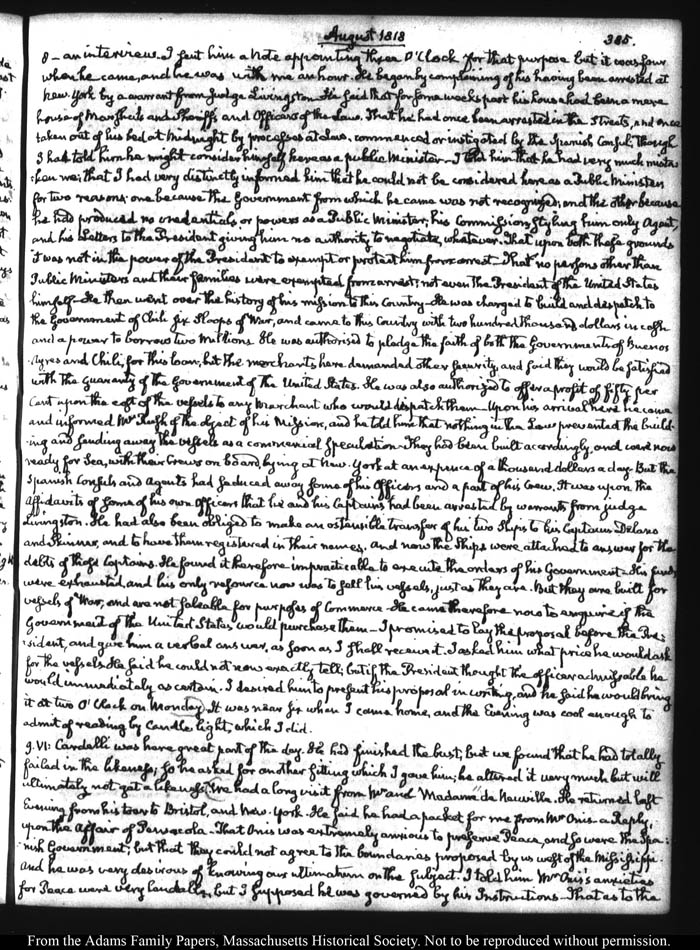 August 1818
385.
8 – an interview. I sent him a Note appointing three O'Clock for that purpose but it was four
when he came, and he was with me an hour. He began by complaining of his having been arrested at
New York by a warrant from Judge Livingston. He said that for some weeks past his house had been a mere
house of Marshals and Sheriffs and Officers of the Law. That he had once been arrested in the Streets, and once
taken out of his bed at midnight by processes at Law, commenced or instigated by the Spanish Consul; though
I had told him he might consider himself here as a public Minister – I told him that he had very much mista:
:ken me; that I had very distinctly informed him that he could not be considered here as a Public Minister
for two reasons: one because the Government from which he came was not recognized, and the other because
he had produced no credentials or powers as a Public Minister; his Commission, styling him only Agent,
and his Letters to the President giving him no authority to negotiate, whatever. That upon both those grounds
it was not in the power of the President to exempt or protect him from arrest – That no persons other than
Public Ministers and their families were exempted from arrest: not even the President of the United States
himself – He then went over the history of his mission to this Country – He was charged to build and despatch to
the Government of Chili six Sloops of War, and came to this Country with two hundred thousand dollars in cash
and a power to borrow two Millions. He was authorised to pledge the faith of both the Governments of Buenos
Ayres and Chili, for this loan; but the merchants have demanded other security, and said they would be satisfied
with the Guaranty of the Government of the United States. He was also authorized to offer a profit of fifty per
Cent upon the cost of the vessels to any Merchant who would despatch them – Upon his arrival here he came
and informed Mr Rush of the object of his Mission, and he told him that nothing in the Law prevented the build:
:ing and sending away the vessels as a commercial speculation – They had been built accordingly, and were now
ready for Sea, with their Crews on board, lying at New York at an expence of a thousand dollars a day. But the
Spanish Consuls and Agents had seduced away some of his Officers and a part of his Crew. It was upon the
Affidavits of some of his own Officers that he and his Captains had been arrested by warrants from judge
Livingston. He had also been obliged to make an ostensible transfer of his two Ships to his Captains Delano
and Skinner, and to have them registered in their names, and now the Ships were attached to answer for the
debts of those Captains. He found it therefore impracticable to execute the orders of his Government – His funds
were exhausted, and his only resource now was to sell his vessels, just as they are. But they are built for
vessels of War, and are not saleable for purposes of Commerce – He came therefore now to enquire if the
Government of the United States would purchase them – I promised to lay the proposal before the Pre:
:sident, and give him a verbal answer, as soon as I shall receive it. I asked him what price he would ask
for the vessels. He said he could not now exactly tell; but if the President thought the offer admissible he
would immediately ascertain. I desired him to present his proposal in writing, and he said he would bring
it at two O'Clock on Monday. It was near six when I came home, and the Evening was cool enough to
admit of reading by Candle light, which I did.
9. VI: Cardelli was here great part of the day. He had finished the bust, but we found that he had totally
failed in the likeness, so he asked for another sitting which I gave him; he altered it very much but will
ultimately not get a likeness. We had a long visit from Mr and Madame de Neuville. He returned last
Evening from his tour to Bristol, and New-York. He said he had a packet for me from Mr Onis – a Reply,
upon the Affair of Pensacola – That Onis was extremely anxious to preserve Peace, and so were the Spa:
:nish Government; but that they could not agree to the boundaries proposed by us west of the Mississippi.
and he was very desirous of knowing our ultimatum on the subject. I told him Mr Onis's anxieties
for Peace were very laudable, but I supposed he was governed by his Instructions – That as to the
From the Adams Family Papers, Massachusetts Historical Society. Not to be reproduced without permission.